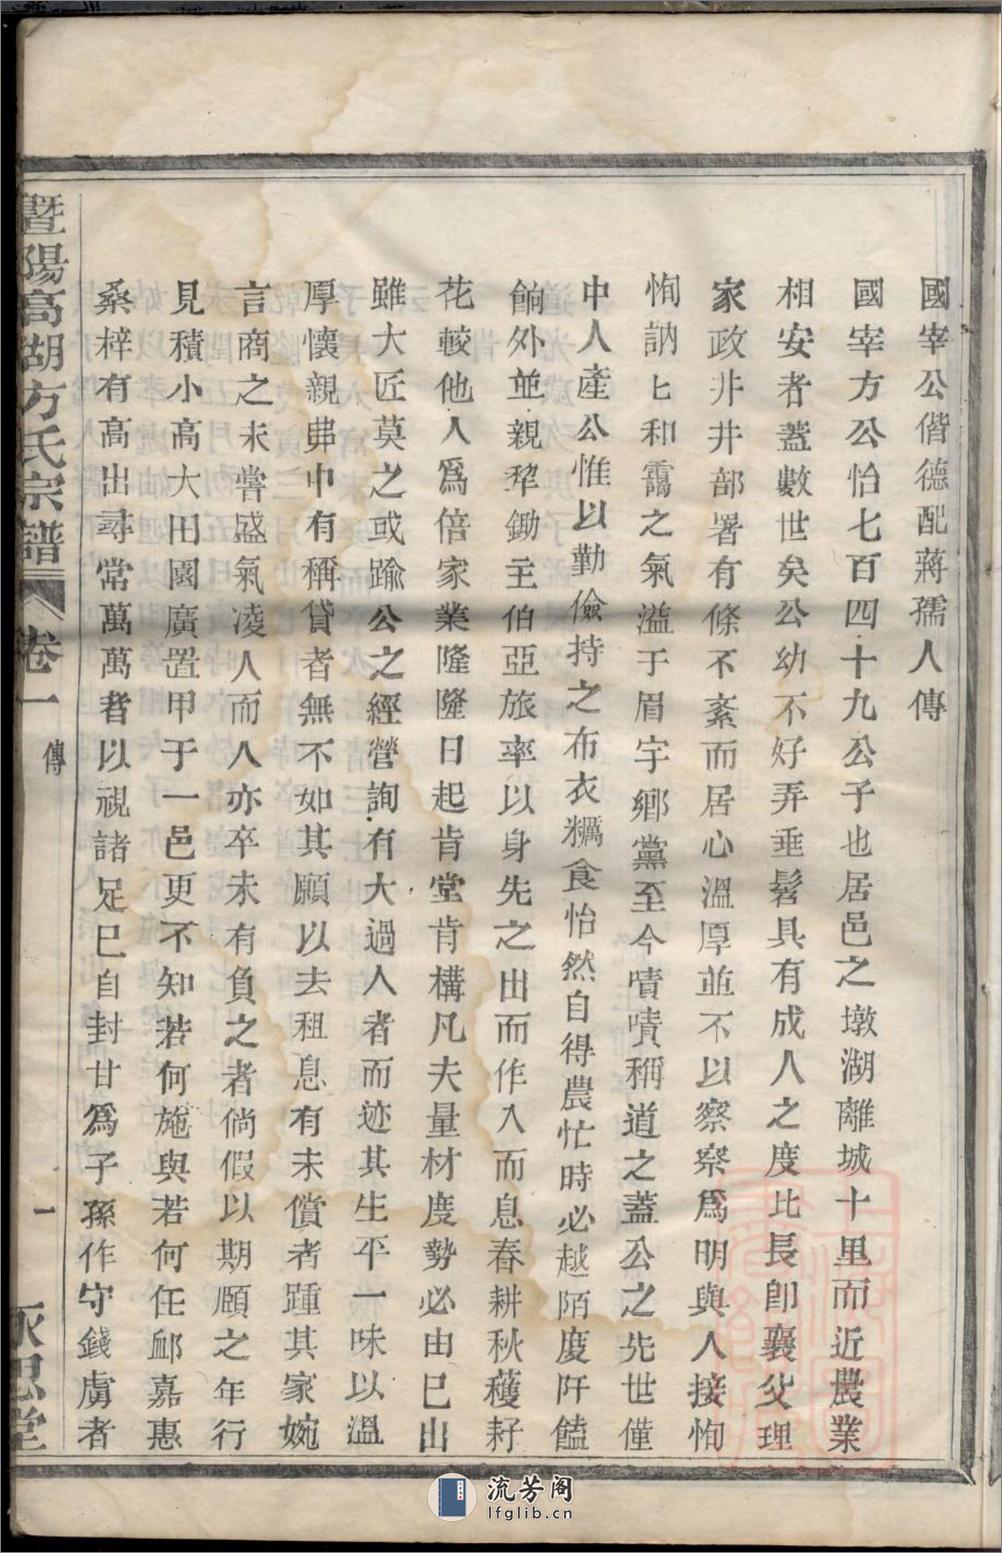 國宰公偕德配蔣孺人傳
國宰方公怡七百四十九公子也居邑之墩湖離城十里而近農業
相安者蓋數世矣公幼不好弄垂髫具有成人之度比長卽襄父理
家政井井部署有條不紊而居心溫厚並不以察察爲明與人接恂
恂訥匕和靄之氣溢于眉宇鄉黨至今嘖嘖稱道之蓋公之先世僅
中人產公惟以勤儉持之布衣糲食怡然自得農忙時必越陌度阡饁
餉外並親犂鋤主伯亞旅率以身先之出而作入而息春耕秋穫耔
花較他人爲倍家業隆隆日起肯堂肯構凡夫量材度勢必由已出
雖大匠莫之或踰公之經營詢有大過人者而迹其生平一味以溫
厚懷親串中有稱貸者無不如其願以去租息有未償者踵其家婉
言商之未嘗盛氣凌人而人亦卒未有負之者倘假以期頤之年行
見積小高大田園廣置甲于一邑更不知若何施與若何任䘏嘉惠
桑梓有高出尋常萬萬者以視諸足巳自封甘爲子孫作守錢虜者
暨陽高湖方氏宗譜 卷一 傳 一 永思堂
流芳阁
lfglib.cn